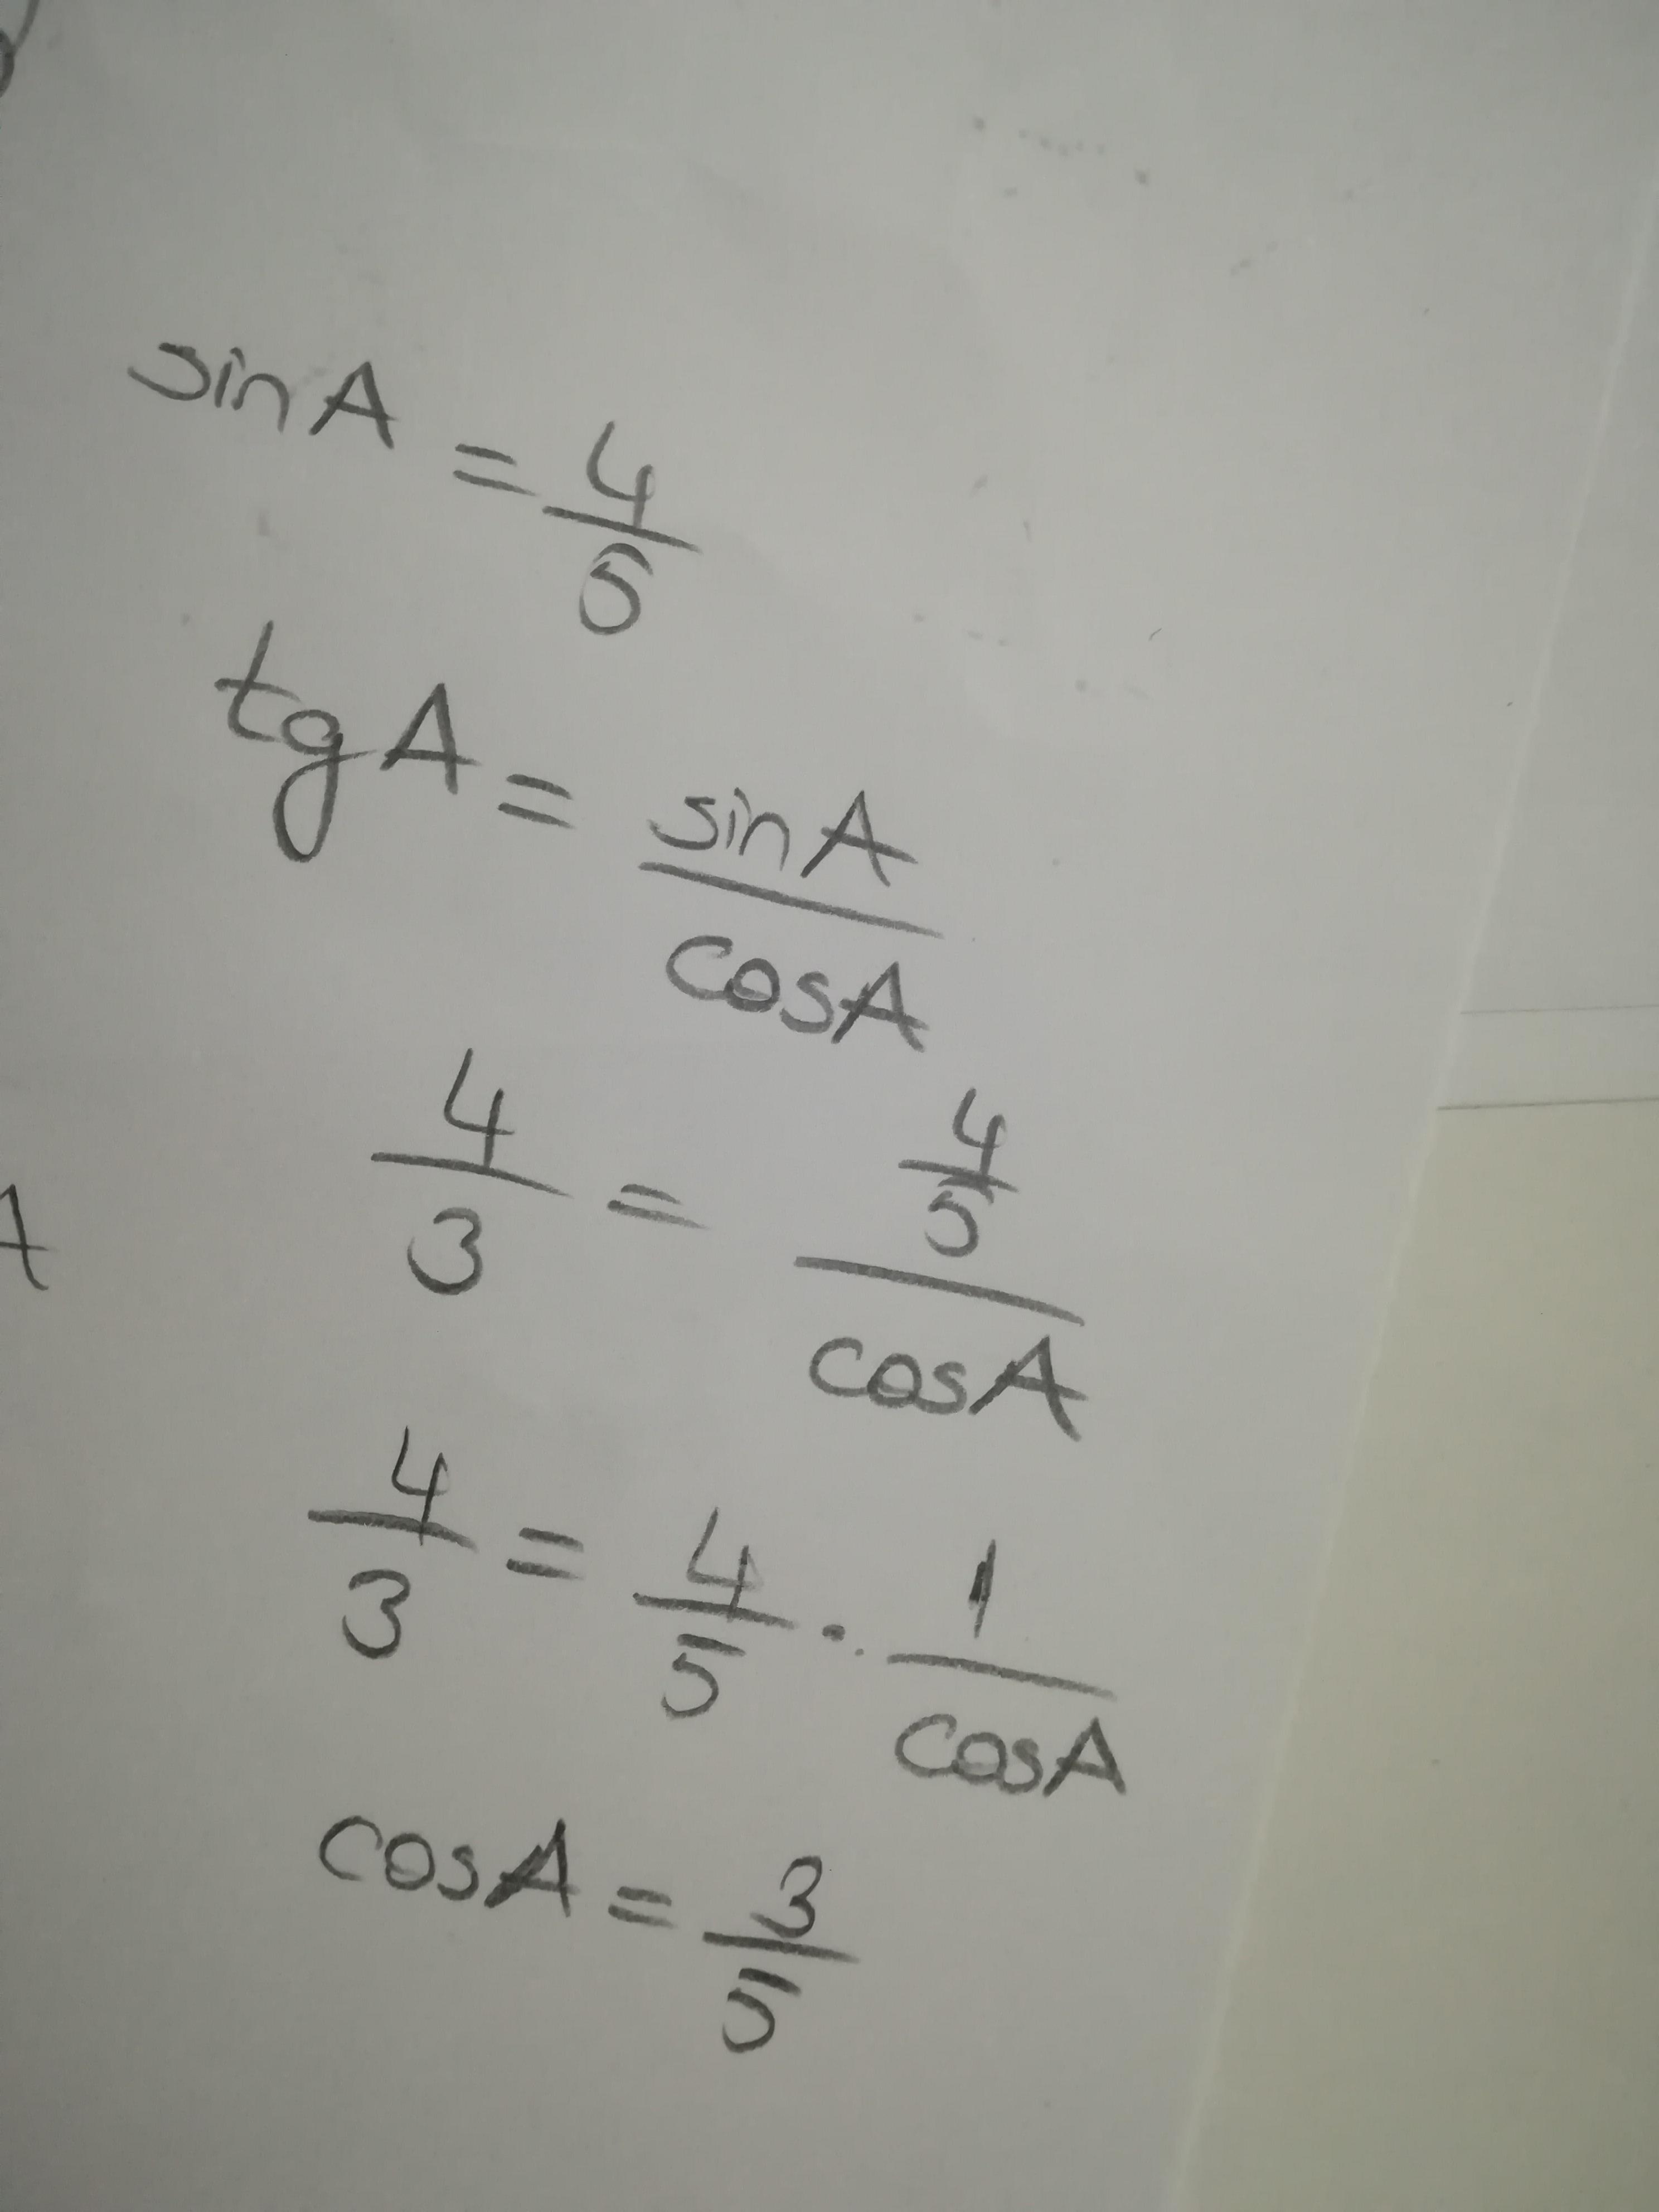 sin A = 4/5
tg A = sin A / cos A
4/3 = 4/5 / cos A
4/3 = 4/5 · 1/cos A
cos A = 3/5
A